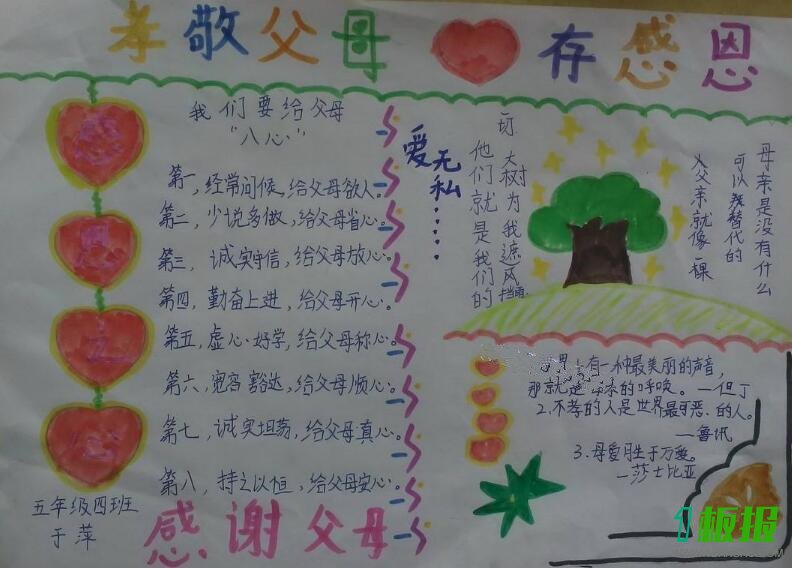 孝敬父母 存感恩
我们要给父母
"八心"
第一,经常问候,给父母欲人。
第二,少说多做,给父母省心。
第三,诚实守信,给父母放心。
第四,勤奋上进,给父母开心。
第五,虚心好学,给父母称心。
第六,宽容豁达,给父母顺心。
第七,诚实坦荡,给父母真心。
第八,持之以恒,给父母安心。
五年级四班
于萍
感谢父母
爱无私……
母亲是没有什么
可以 替代的
父亲就像一棵
大树为我遮风挡雨
他们就是我们的
一切
界上有一种最美丽的声音,
那就是 的呼唤。—但丁
2.不孝的人是世界最可恶的人。
—鲁讯
3.母爱胜于万爱。
—莎士比亚
板报